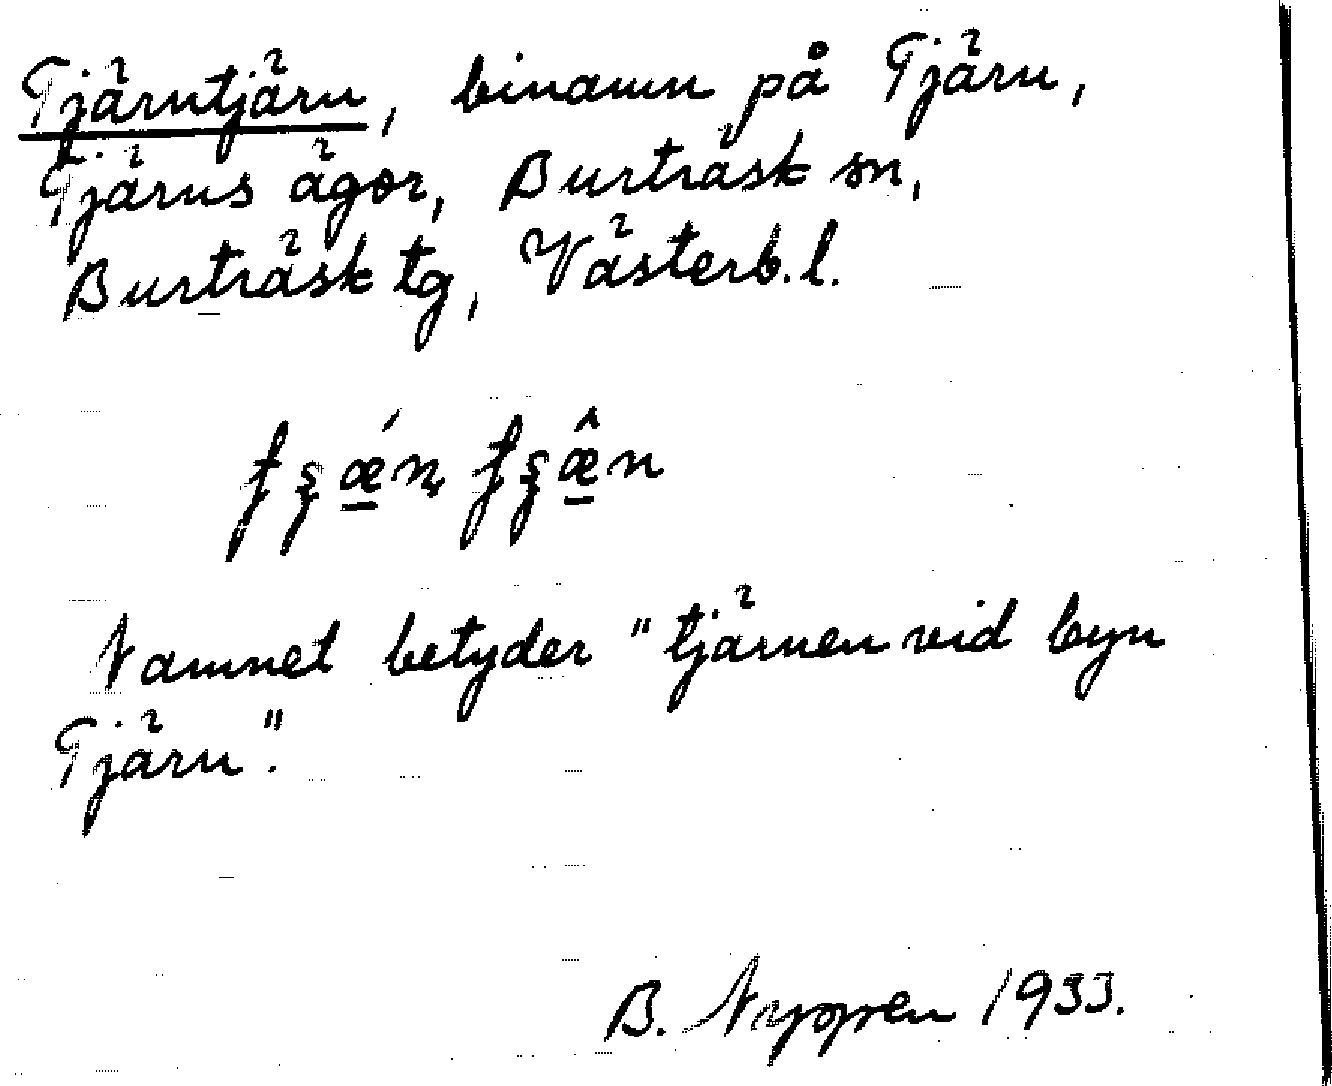 Tjärntjärn, binamn på Tjärn,
Tjärns ägor, Burträsk sn,
Burträsk tg, Västerb. l.
Namnet betyder "tjärnen vid byn
Tjärn".
B. Nyppen 1933.